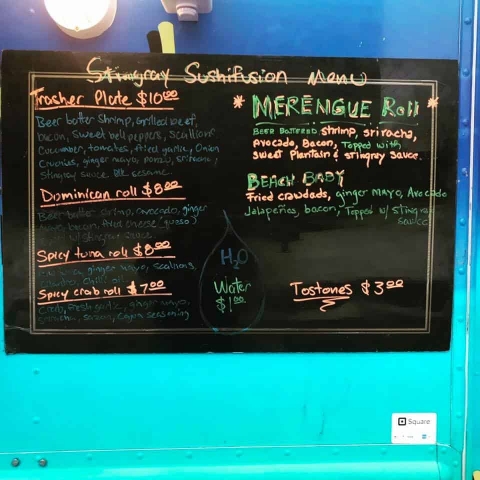 Stingray Sushifusion Menu
Trasher Plate $10.00
Beer batter Shrimp, Grilled beef,
bacon, Sweet bell peppers, Scallions
Cucumber, tomatoes, fried garlic, Onion
Crunchies, ginger mayo, ponzu, sriracha,
Stingray sauce. Blk sesame.
Dominican roll $8.00
Beer batter shrimp, avocado, ginger
mayo, bacon, fried cheese (queso)
Stingray sauce
Spicy tuna roll $8.00
ginger mayo, scallions,
chili oil
Spicy crab roll $7.00
Crab, fresh garlic, ginger mayo,
sriracha, sesame, Cajun seasoning
* MERENGUE Roll *
BEER BATTERED shrimp, sriracha,
Avocado, Bacon, Topped with
Sweet Plantain & stingray sauce.
BEACH BABY
Fried crawdads, ginger mayo, Avocado
Jalapeños, bacon, Topped w/ Stingray
sauce
H2O
Water
$1.00
Tostones $3.00
Square